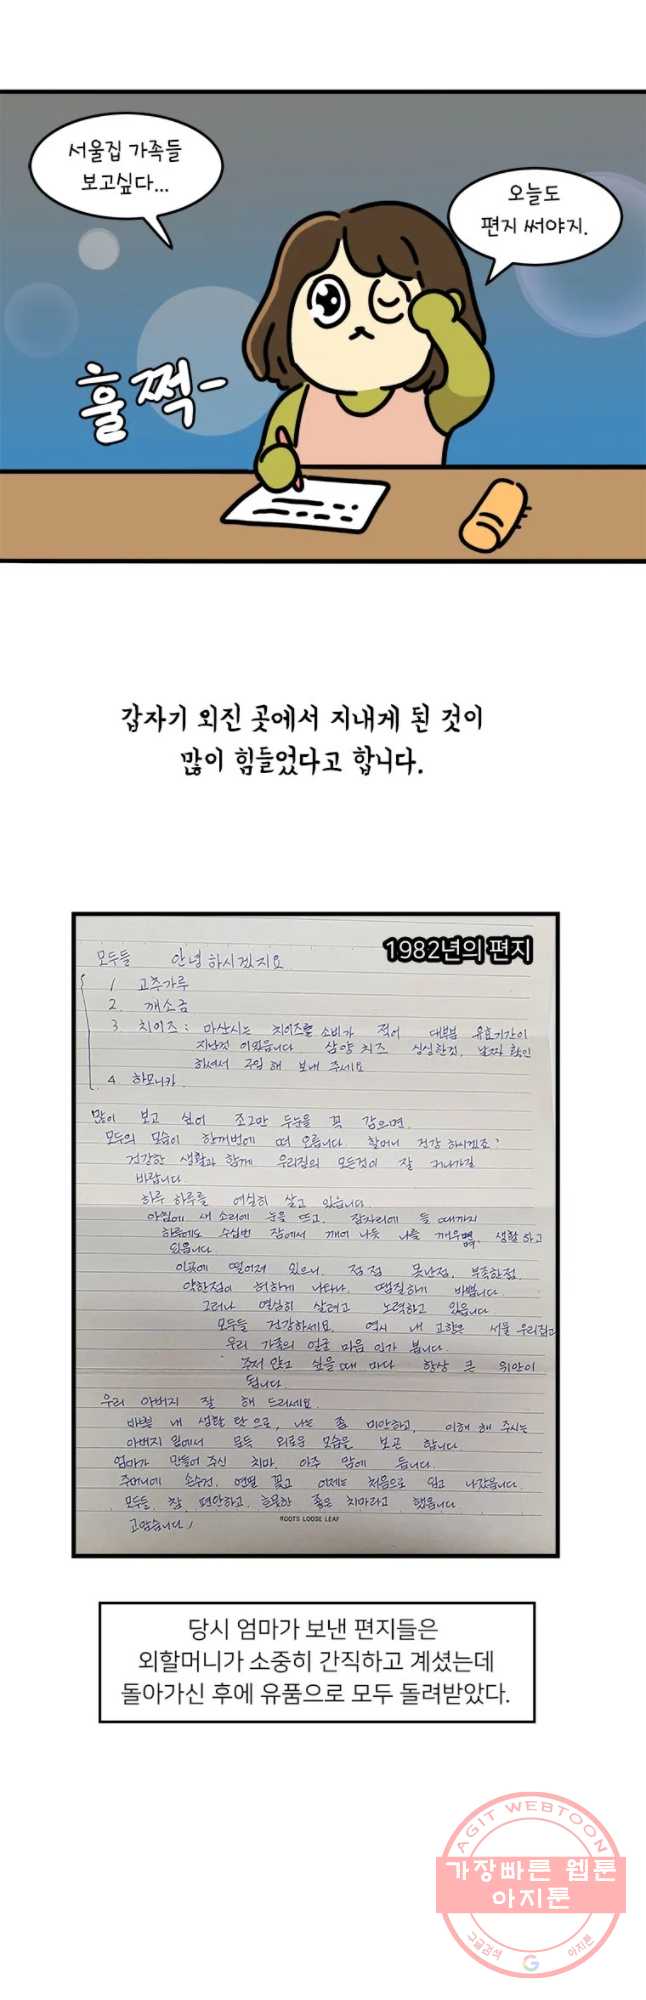 서울집 가족들
보고싶다...
오늘도
편지 써야지.
훌쩍-
갑자기 외진 곳에서 지내게 된 것이
많이 힘들었다고 합니다.
1982년의 편지
모두들 안녕하시겠지요
1 고추가루
2. 깨소금
3 치이즈: 마산시는 치이즈를 소비가 적어 대부분 유효기간이
지난것 이와읍니다. 삼양 치즈 싱싱한것, 날짜 확인
하셔서 구입해 보내 주세요
4 하모니카.
많이 보고 싶어 조그만 두눈을 꼭 감으면.
모두의 모습이 한꺼번에 떠 오릅니다. 할머니 건강 하시겠죠?
건강한 생활과 함께 우리집의 모든것이 잘 커나가길
바랍니다.
하루 하루를 열심히 살고 있읍니다.
아침에 새 소리에 눈을 뜨고, 잠자리에 들 때까지
하루에도 수십번 잠에서 깨어 나듯 나를 깨우며, 생활하고
있읍니다.
이곳에 떨어져 있으니, 점점 못난점, 부족한점.
약한점이 허하게 나타나, 땜질하기 바쁩니다.
그러나 열심히 살려고 노력하고 있읍니다
모두들 건강하세요. 역시 내 고향은 서울 우리집과
우리 가족의 얼굴 마음 인가 봅니다.
주저 앉고 싶을때 마다 항상 큰 위안이
됩니다.
우리 아버지 잘 해 드리세요.
바쁜 내 생활 탓으로, 나는 좀 미안하고, 이해 해 주시는
아버지 옆에서 문득 외로운 모습을 보곤 합니다.
엄마가 만들어 주신 치마, 아주 맘에 듭니다.
주머니에 손수건, 연필 꽂고 어제는 처음으로 입고 나갔읍니다.
모두들, 참 편안하고, 훌륭한 좋은 치마라고 했읍니다
고맙습니다!
ROOTS LOOSE LEAF
당시 엄마가 보낸 편지들은
외할머니가 소중히 간직하고 계셨는데
돌아가신 후에 유품으로 모두 돌려받았다.
AGIT WEBTOON
가장빠른 웹툰
아지툰
구글검색 G 아지툰